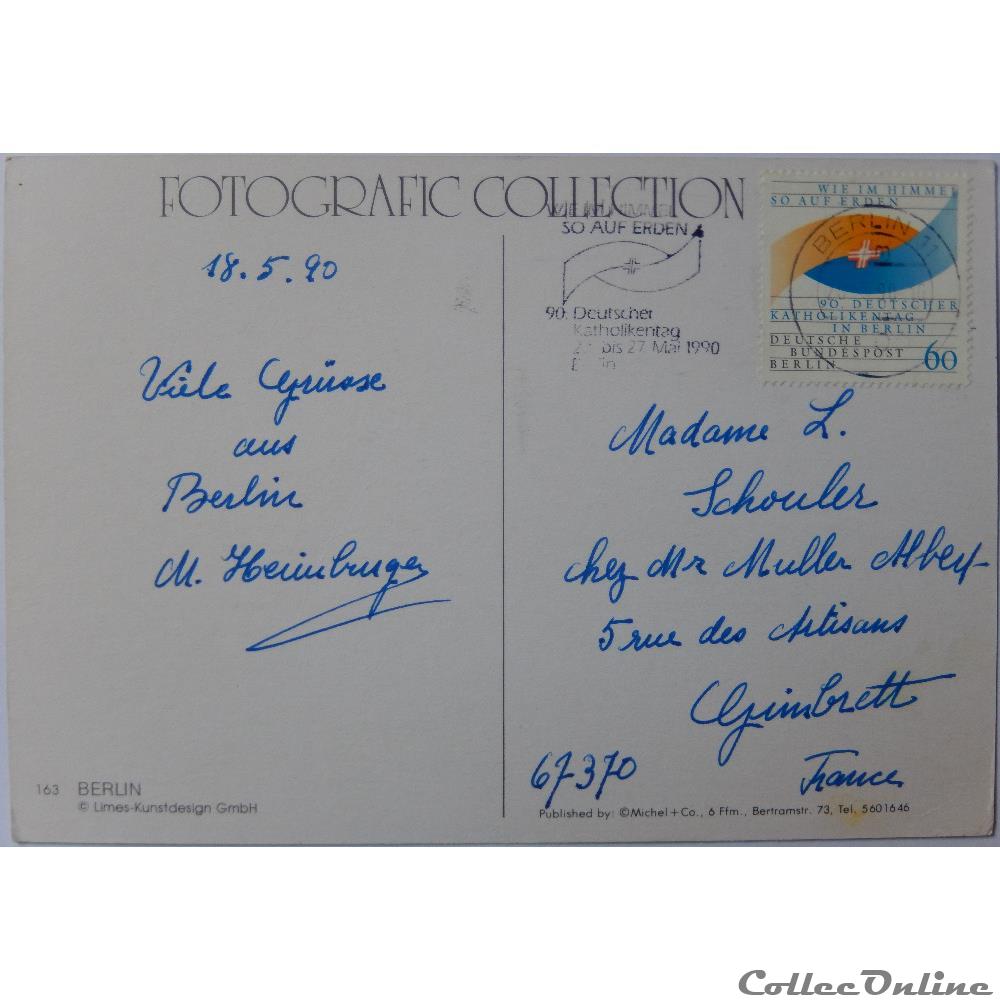 FOTOGRAFIC COLLECTION
18.5.90
Viele Grüsse
aus
Berlin
M. Heimburger
163 BERLIN
© Limes-Kunstdesign GmbH
WIE IM HIMMEL
SO AUF ERDEN
90. Deutscher
Katholikentag
bis 27. Mai 1990
WIE IM HIMMEL
SO AUF ERDEN
BERLIN 11
90. DEUTSCHER
KATHOLIKENTAG
IN BERLIN
DEUTSCHE
BUNDESPOST
BERLIN 60
Madame L.
Schouler
chez Mr Muller Albert
5 rue des Artisans
Gimbrett
67370 France
Published by: ©Michel + Co., 6 Ffm., Bertramstr. 73, Tel. 5601646
CollecOnline